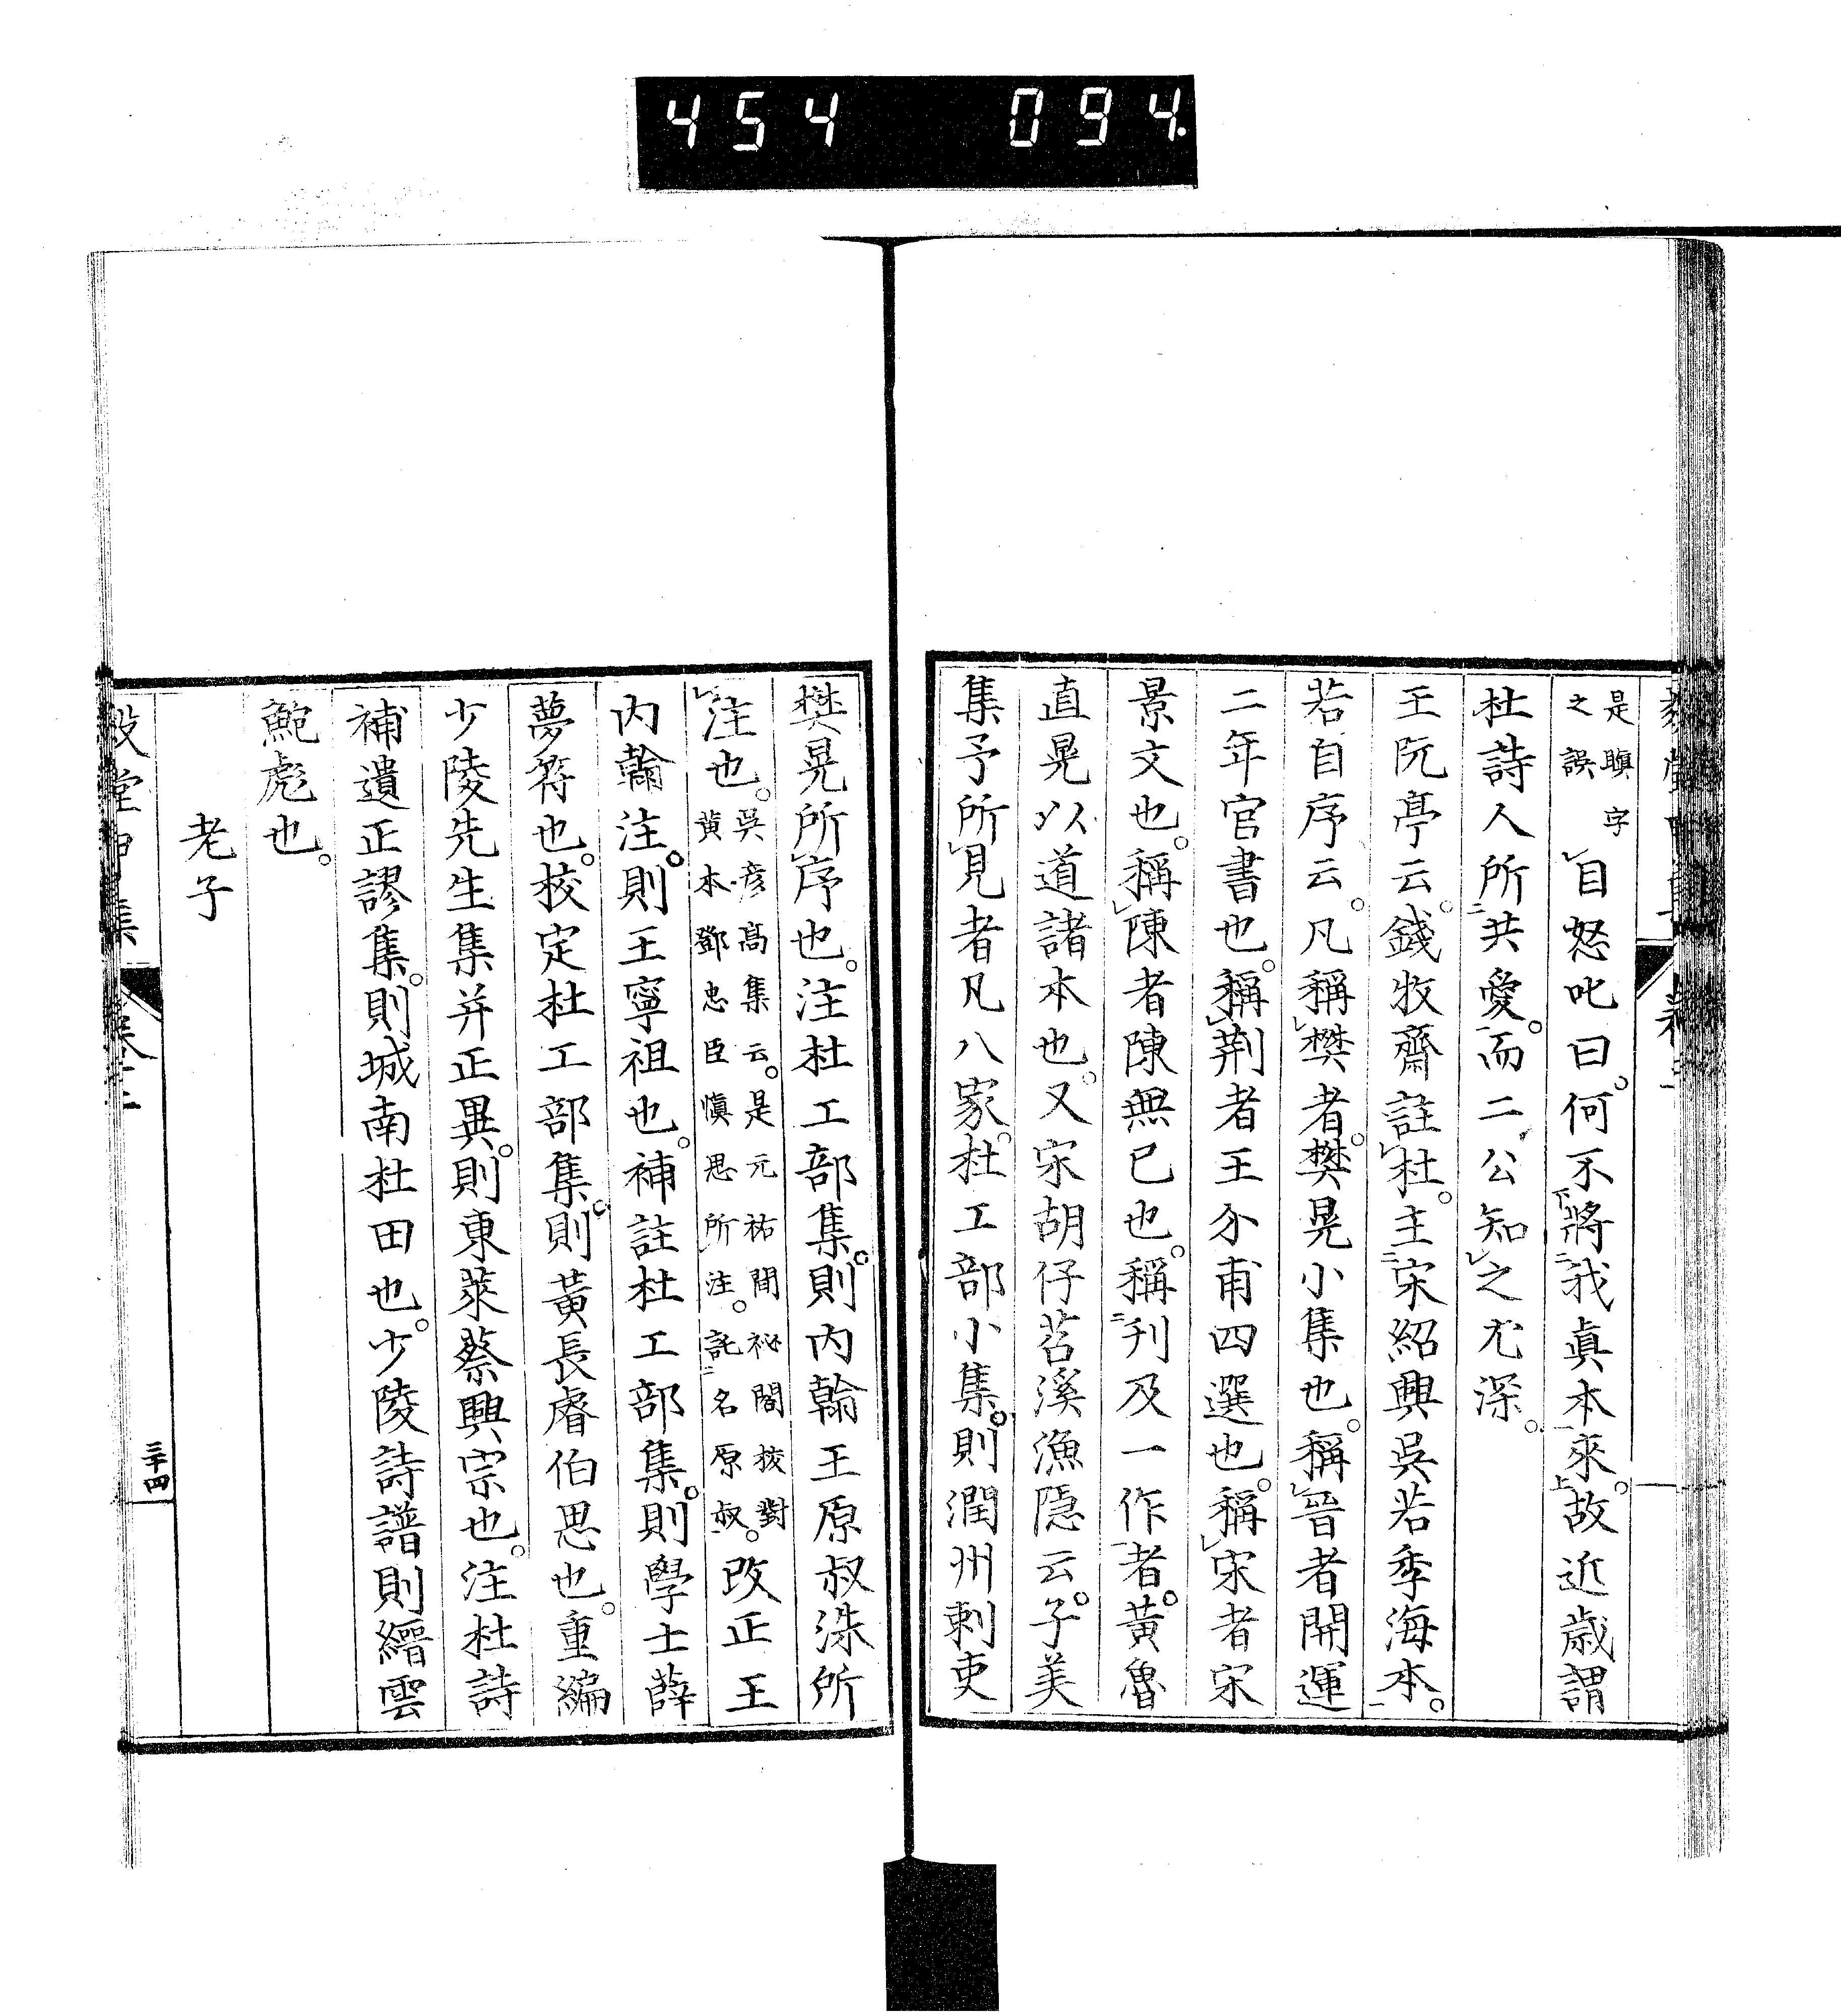 454 094.
是瞋字
之誤
自怒叱曰。何不將我眞本來。故近歲謂
杜詩人所共愛。而二公知之尤深。
王阮亭云。錢牧齋註杜。主宋紹興吳若季海本。
若自序云。凡稱樊者。樊晃小集也。稱晉者開運
二年官書也。稱荆者王介甫四選也。稱宋者宋
景文也。稱陳者陳無已也。稱刊及一作者。黃魯
直晁以道諸本也。又宋胡仔苕溪漁隱云。子美
集予所見者凡八家。杜工部小集。則潤州刺吏
樊晃所序也。注杜工部集。則內翰王原叔洙所
注也。
吳彦高集云。是元祐間祕閣挍對
黃本鄧忠臣愼思所注。託名原叔。
改正王
內翰注。則王寧祖也。補註杜工部集。則學士薛
夢符也。挍定杜工部集。則黃長睿伯思也。重編
少陵先生集并正異。則東萊蔡興宗也。注杜詩
補遺正謬集。則城南杜田也。少陵詩譜則縉雲
鮑彪也。
老子
三十四